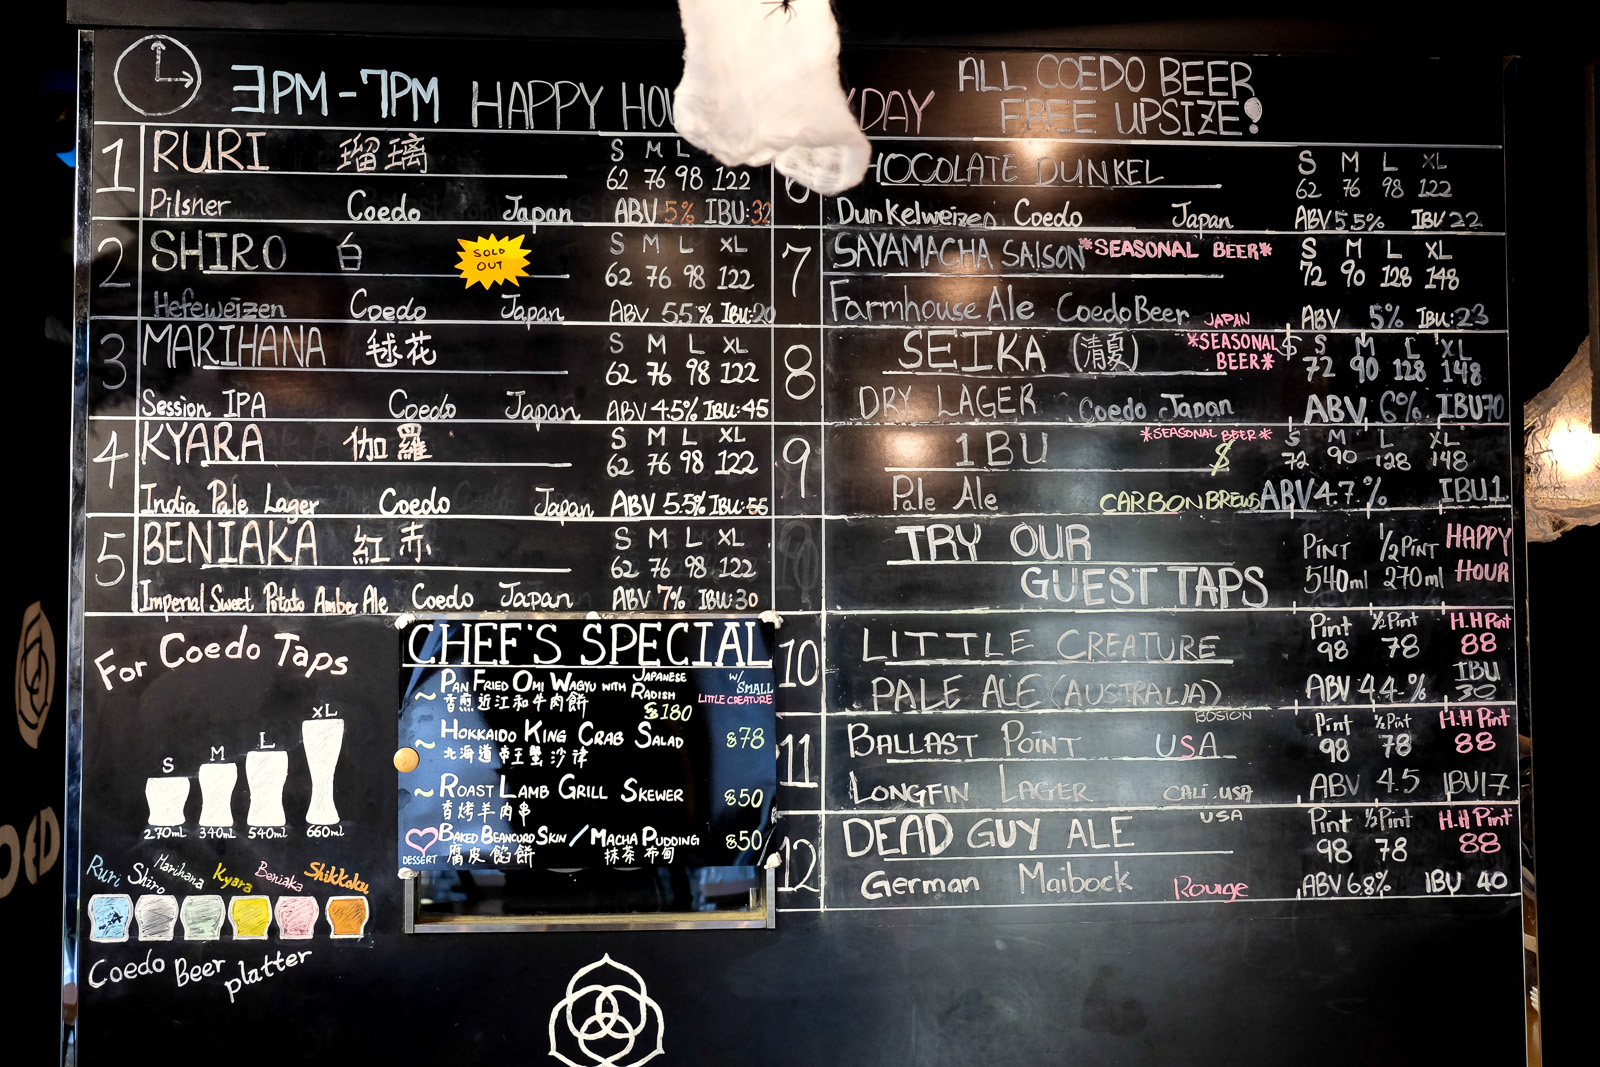 3PM-7PM HAPPY HOU DAY ALL COEDO BEER
FREE UPSIZE!
1 RURI 瑠璃 S M L
62 76 98 122
Pilsner Coedo Japan ABV 5% IBU:32
2 SHIRO 白 SOLD OUT S M L XL
62 76 98 122
Hefeweizen Coedo Japan ABV 5.5% IBU:20
3 MARIHANA 毬花 S M L XL
62 76 98 122
Session IPA Coedo Japan ABV 4.5% IBU:45
4 KYARA 伽羅 S M L XL
62 76 98 122
India Pale Lager Coedo Japan ABV 5.5% IBU:55
5 BENIAKA 紅赤 S M L XL
62 76 98 122
Imperial Sweet Potato Amber Ale Coedo Japan ABV 7% IBU:30
HOCOLATE DUNKEL S M L XL
62 76 98 122
Dunkelweizen Coedo Japan ABV 5.5% IBU 22
7 SAYAMACHA SAISON *SEASONAL BEER* S M L XL
72 90 128 148
Farmhouse Ale Coedo Beer JAPAN ABV 5% IBU:23
8 SEIKA (清夏) *SEASONAL BEER* $ S M L XL
72 90 128 148
DRY LAGER Coedo Japan ABV 6% IBU70
9 1BU *SEASONAL BEER* $ S M L XL
72 90 128 148
Pale Ale CARBON BREWS ABV4.7% IBU1
TRY OUR
GUEST TAPS
PINT 1/2 PINT HAPPY
540ml 270ml HOUR
10 LITTLE CREATURE Pint 1/2 Pint H.H Pint
98 78 88
PALE ALE (AUSTRALIA) ABV 4.4% IBU 30
11 BALLAST POINT USA BOSTON Pint 1/2 Pint H.H Pint
98 78 88
LONGFIN LAGER CALI.USA ABV 4.5 IBU17
12 DEAD GUY ALE USA Pint 1/2 Pint H.H Pint
98 78 88
German Maibock Rouge ABV 6.8% IBU 40
For Coedo Taps
S M L XL
270mL 340mL 540mL 660mL
Ruri Shiro Marihana Kyara Beniaka Shikkoku
Coedo Beer platter
CHEF'S SPECIAL
~ PAN FRIED OMI WAGYU WITH JAPANESE RADISH W/ SMALL LITTLE CREATURE
香煎近江和牛肉餅 $180
~ HOKKAIDO KING CRAB SALAD $78
北海道帝王蟹沙律
~ ROAST LAMB GRILL SKEWER $50
香烤羊肉串
BAKED BEANCURD SKIN / MACHA PUDDING $50
DESSERT 腐皮餡餅 抹茶布甸